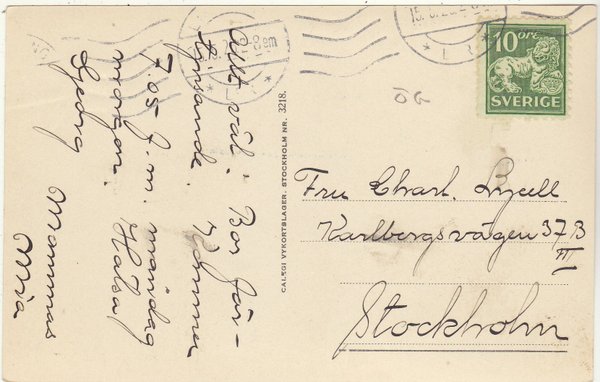 Allt väl! Bor för-
tjusande. Kommer
7.05 f.m. måndag
morgon. Hälsa
Georg
Mammas
Mia
CALEGI VYKORTSLAGER, STOCKHOLM NR. 3218.
10 ÖRE
SVERIGE
Fru Charl. Lyell
Karlbergsvägen 37B
III
Stockholm